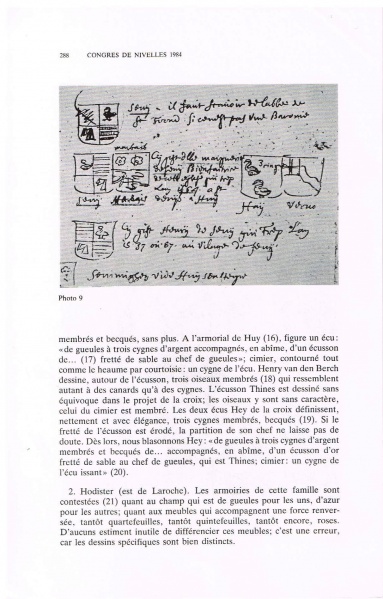 288 CONGRES DE NIVELLES 1984
Seny - il faut de labbe de
St
marbais
Cy gist
Seny Marbais
Hay
Cy gist Henry de Seny qui Lan
15 57 ou 67. au vilage de Seny.
Photo 9
membrés et becqués, sans plus. A l'armorial de Huy (16), figure un écu:
«de gueules à trois cygnes d'argent accompagnés, en abîme, d'un écusson
de... (17) fretté de sable au chef de gueules»; cimier, contourné tout
comme le heaume par courtoisie: un cygne de l'écu. Henry van den Berch
dessine, autour de l'écusson, trois oiseaux membrés (18) qui ressemblent
autant à des canards qu'à des cygnes. L'écusson Thines est dessiné sans
équivoque dans le projet de la croix; les oiseaux y sont sans caractère,
celui du cimier est membré. Les deux écus Hey de la croix définissent,
nettement et avec élégance, trois cygnes membrés, becqués (19). Si le
fretté de l'écusson est érodé, la partition de son chef ne laisse pas de
doute. Dès lors, nous blasonnons Hey: «de gueules à trois cygnes d'argent
membrés et becqués de... accompagnés, en abîme, d'un écusson d'or
fretté de sable au chef de gueules, qui est Thines; cimier: un cygne de
l'écu issant» (20).
2. Hodister (est de Laroche). Les armoiries de cette famille sont
contestées (21) quant au champ qui est de gueules pour les uns, d'azur
pour les autres; quant aux meubles qui accompagnent une force renver-
sée, tantôt quartefeuilles, tantôt quintefeuilles, tantôt encore, roses.
D'aucuns estiment inutile de différencier ces meubles; c'est une erreur,
car les dessins spécifiques sont bien distincts.